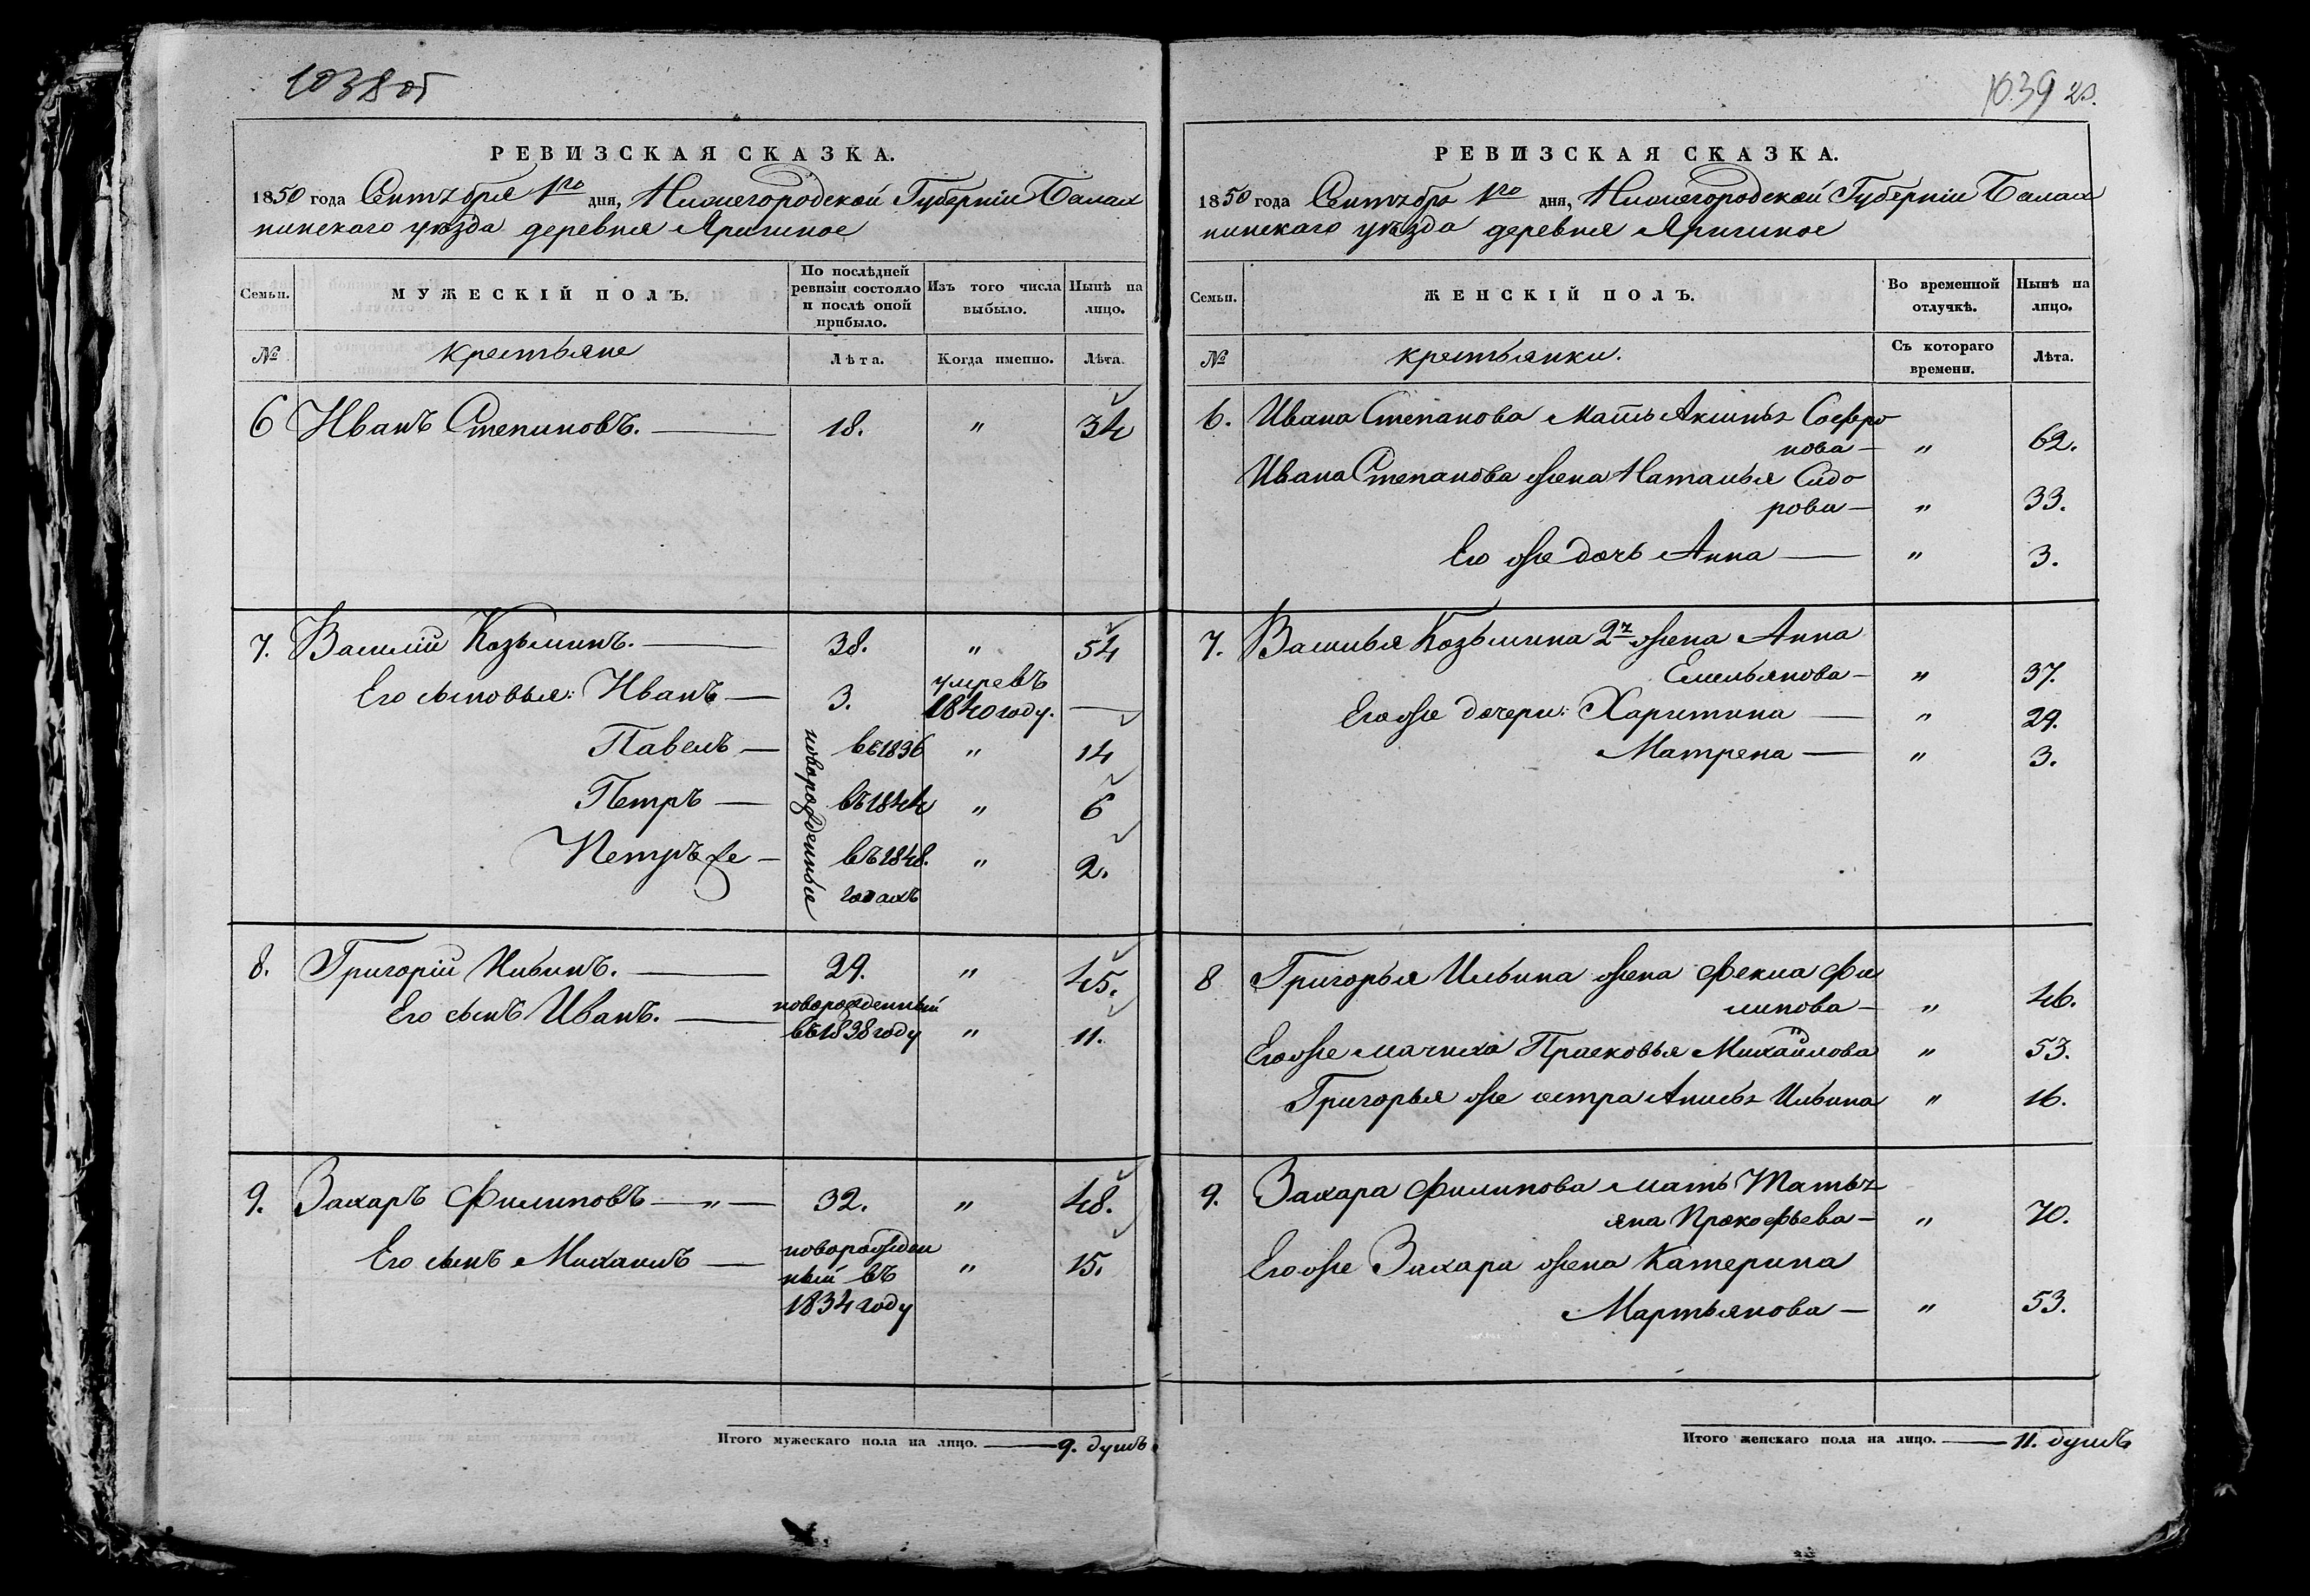 1038 об
РЕВИЗСКАЯ СКАЗКА.
1850 года Сентября 1го дня, Нижегородской Губерніи Балах
нинскаго уѣзда деревня
Семьи.
МУЖЕСКІЙ ПОЛЪ.
По послѣдней ревизіи состояло и послѣ оной прибыло.
Изъ того числа выбыло.
Нынѣ на лицо.
№
крестьяне
Лѣта.
Когда именно.
Лѣта.
6 Иванъ Степановъ. — 18. „ 34
7. Василій Козьминъ. — 38. „ 54
Его сыновья: Иванъ — 3. умре въ 1840 году. —
новорожденные
Павелъ — въ 1836 „ 14
Петръ — въ 1844 „ 6
Петръ же — въ 1848. „ 2.
годахъ
8. Григорій Ильинъ. — 29. „ 45.
Его сынъ Иванъ. — новорожденный въ 1838 году „ 11.
9. Захаръ Филиповъ — „ — 32. „ 48.
Его сынъ Михаилъ — новорожден
ный въ
1834 году „ 15.
Итого мужескаго пола на лицо. — 9. душъ
1039 20.
РЕВИЗСКАЯ СКАЗКА.
1850 года Сентября 1го дня, Нижегородской Губерніи Балах
нинскаго уѣзда деревня
Семьи.
ЖЕНСКІЙ ПОЛЪ.
Во временной отлучкѣ.
Нынѣ на лицо.
№
крестьянки.
Съ котораго времени.
Лѣта.
6. Ивана Степанова мать Аксинья Софро
нова — „ 62.
Ивана Степанова жена Наталья Сидо
рова — „ 33.
Его же дочь Анна — „ 3.
7. Василья Козьмина 2я жена Анна
Емельянова — „ 37.
Его же дочери: Харитина — „ 29.
Матрена — „ 3.
8 Григорья Ильина жена Фекла Фи
липова — „ 46.
Его же мачиха Прасковья Михайлова „ 53.
Григорья же сестра Анисья Ильина „ 16.
9. Захара Филипова мать Татья
яна Прокофьева — „ 70.
Его же Захара жена Катерина
Мартьянова — „ 53.
Итого женскаго пола на лицо. — 11. душъ